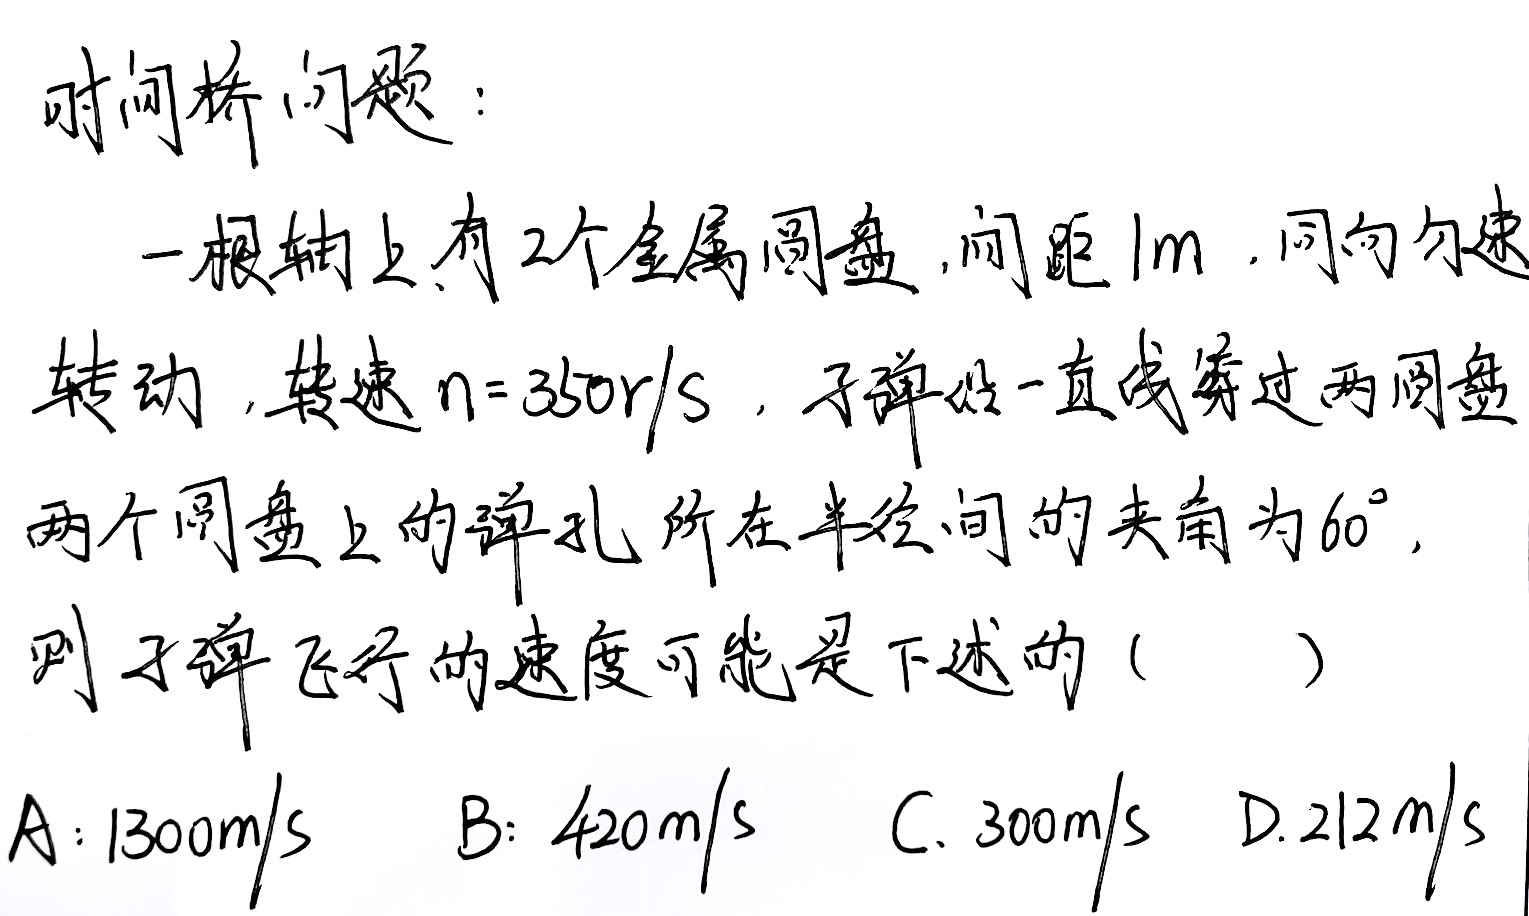 时间桥问题：
一根轴上有2个金属圆盘，间距1m，同向匀速
转动，转速n=350r/s，子弹沿一直线穿过两圆盘
两个圆盘上的弹孔所在半径间的夹角为60°，
则子弹飞行的速度可能是下述的（　　）
A：1300m/s　B：420m/s　C. 300m/s　D. 212m/s